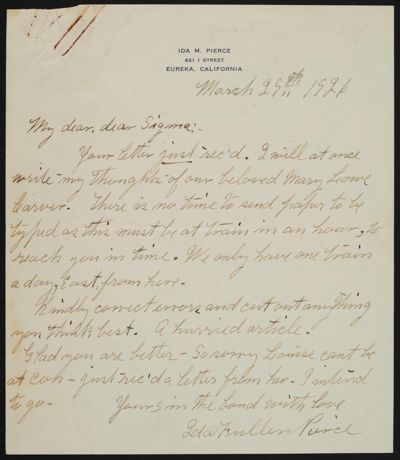 IDA M. PIERCE
821 I STREET
EUREKA, CALIFORNIA
March 29th 1926
My dear, dear Sigma:-
Your letter just rec'd. I will at once
write my thoughts of our beloved Mary Lowe
Carver. There is no time to send paper to be
typed as this must be at train in an hour, to
reach you in time. We only have one train
a day, East from here.
Kindly correct errors and cut out anything
you think best. A hurried article.
Glad you are better - So sorry Louise can't be
at con - just rec'd a letter from her. I intend
to go -
Yours in the bond with love
Ida Fuller Pierce